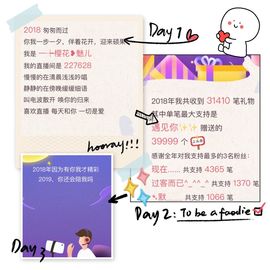 Day 1
2018 匆匆而过
你我一步一夕，伴着花开，迎来硕果
我是 一╊樱花❥魅儿
我的直播间是 227628
慢慢的在清晨浅浅吟唱
静静的在傍晚缓缓细语
叫电波散开 唤你的归来
喜欢直播 每天和你 一切是爱
hooray!!!
2018年我共收到 31410 笔礼物
其中单笔最大支持是
遇见你✨✨ 赠送的
39999 个
感谢全年对我支持最多的3名粉丝：
现在...... 共支持 4365 笔
过客而已^_^^_^ 共支持 1370 笔
默 共支持 1066 笔
2018年因为有你我才精彩
2019、你还会陪我吗
Day 2: To be a foodie
Day 3